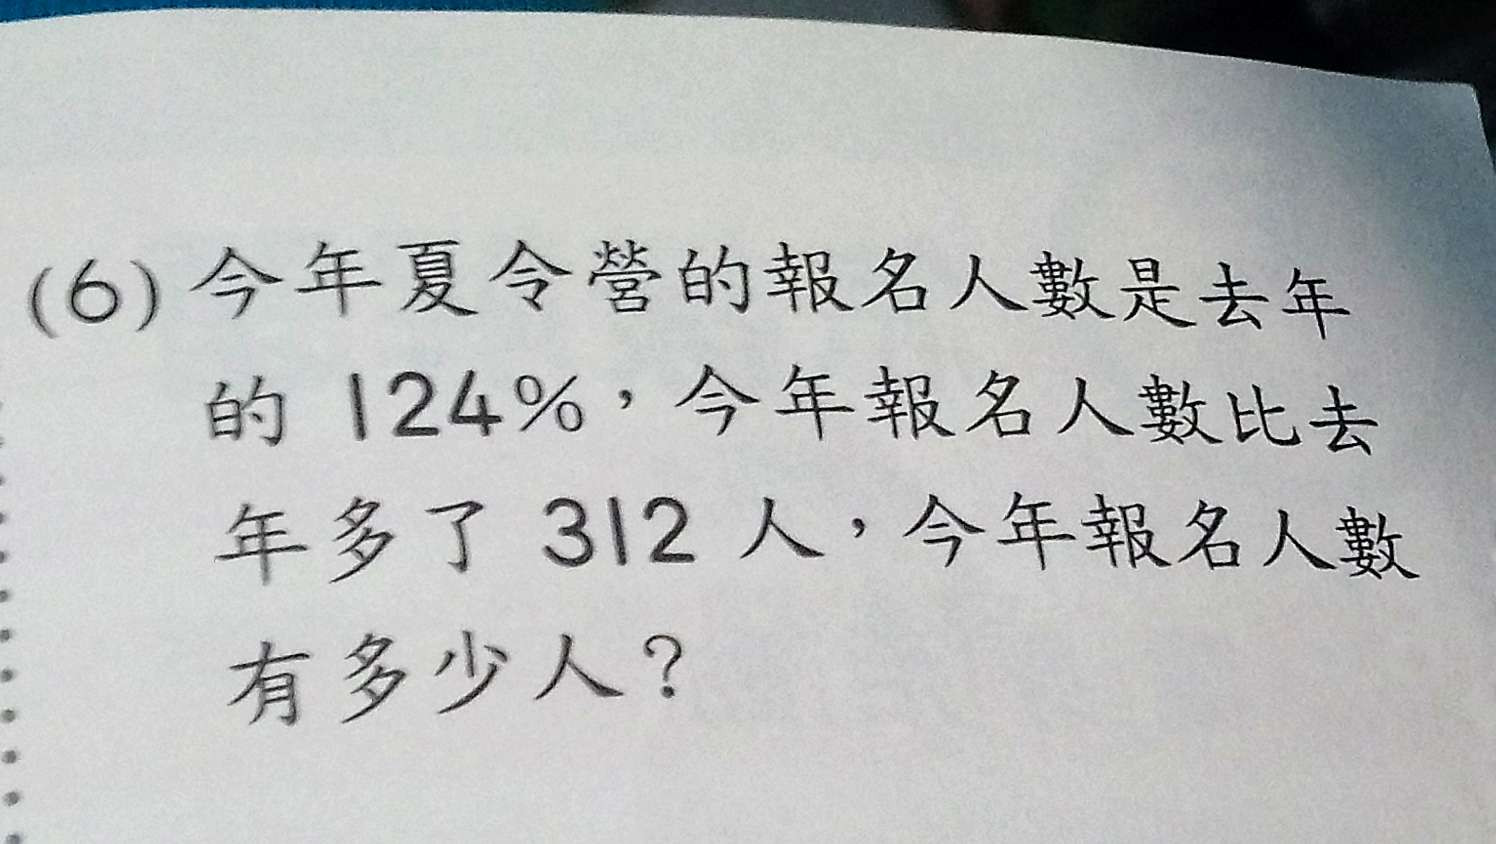 (6) 今年夏令營的報名人數是去年
的 124%，今年報名人數比去
年多了 312 人，今年報名人數
有多少人？